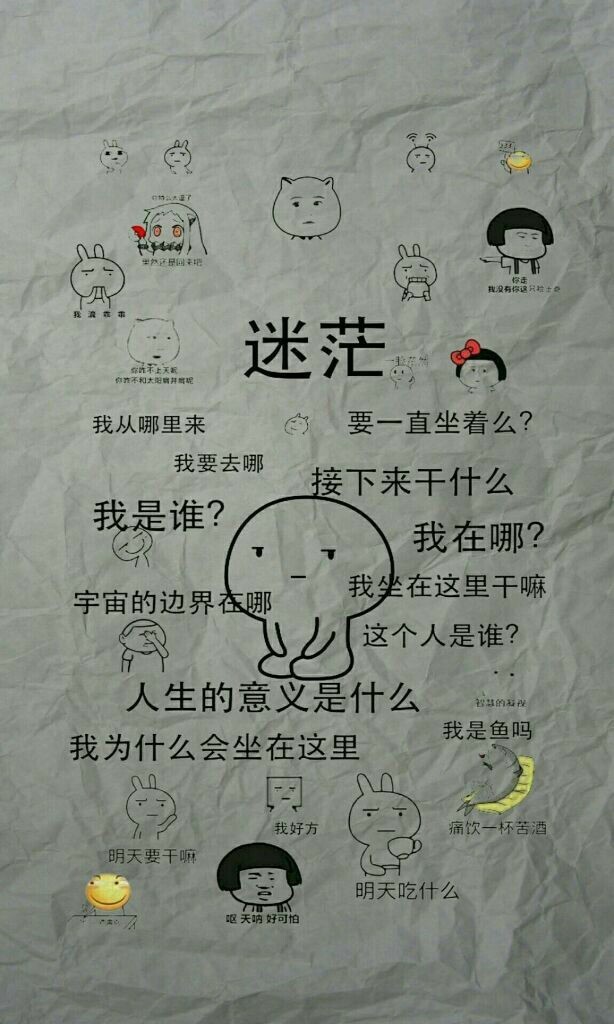 你特么太逗了
果然还是回来吧
你走
我没有你这只哈士奇
我演乖乖
迷茫
你咋不上天呢
你咋不和太阳肩并肩呢
一脸茫然
我从哪里来
要一直坐着么?
我要去哪
接下来干什么
我是谁?
我在哪?
我坐在这里干嘛
宇宙的边界在哪
这个人是谁?
人生的意义是什么
智慧的凝视
我是鱼吗
我为什么会坐在这里
我好方
痛饮一杯苦酒
明天要干嘛
明天吃什么
呕 天呐 好可怕